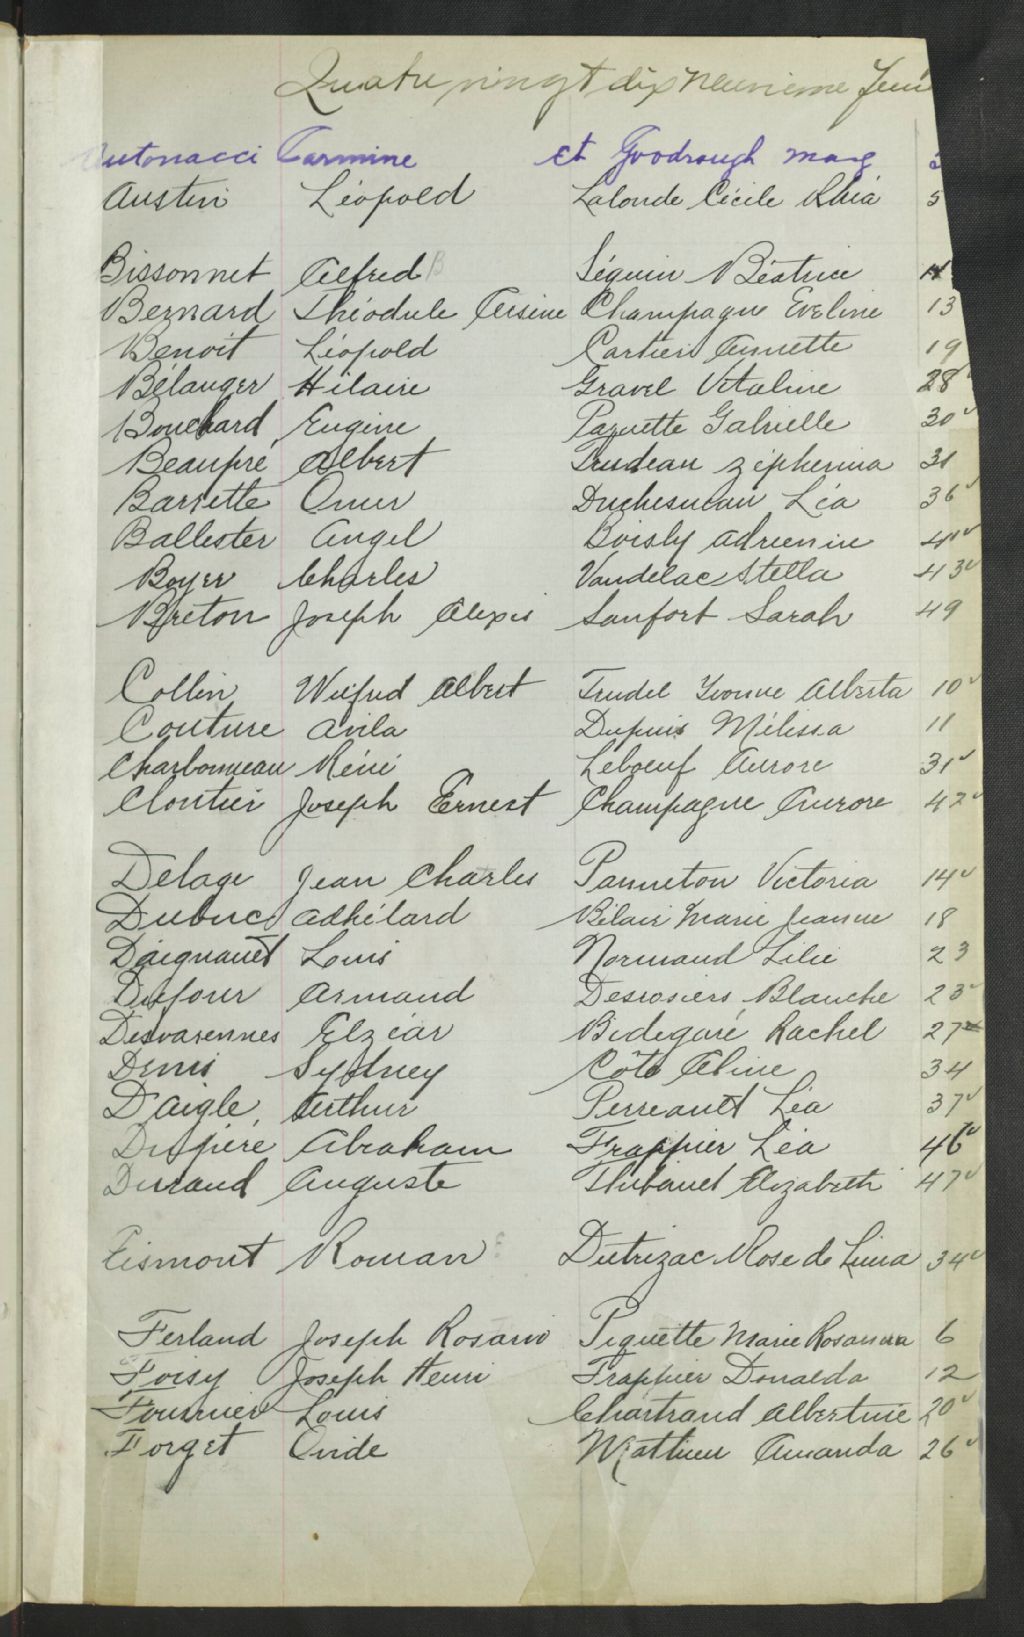 Quatre vingt dix neuvieme feui
Antonacci Carmine et Goodrough Marg
Austin Léopold Lalonde Cécile Rhéa 5
Bissonnet Alfred B Séguin Béatrice
Bernard Théodule Arsène Champagne Eveline 13
Benoit Léopold Cartier Annette 19
Bélanger Hilaire Gravel Vitaline 28
Bouchard Eugène Paquette Gabrielle 30
Beaupré Albert Trudeau Zéphirina 31
Barrette Omer Duchesneau Léa 36
Ballester Angel Boisly Adrienne
Boyer Charles Vandelac Stella 43
Breton Joseph Alexis Sanfort Sarah 49
Collin Wilfrid Albert Trudel Yvonne Alberta 10
Couture Avila Dupuis Mélissa 11
Charbonneau Réné Leboeuf Aurore 31
Cloutier Joseph Ernest Champagne Aurore 42
Delage Jean Charles Panneton Victoria 14
Dubuc Adhélard Bélair Marie Jeanne 18
Daignault Louis Normand Lilie 23
Dufour Armand Desrosiers Blanche 23
Desvarennes Elzéar Bidegaré Rachel 27
Denis Sydney Côté Aline 34
D'Aigle Arthur Perreault Léa 37
Dupéré Abraham Frappier Léa 46
Durand Auguste Thibault Elizabeth 47
Eismont Roman Dutrizac Rose de Lima 34
Ferland Joseph Rosario Piquette Marie Rosanna 6
Foisy Joseph Henri Frappier Donalda 12
Fournier Louis Chartrand Albertine 20
Forget Ovide Mathieu Amanda 26